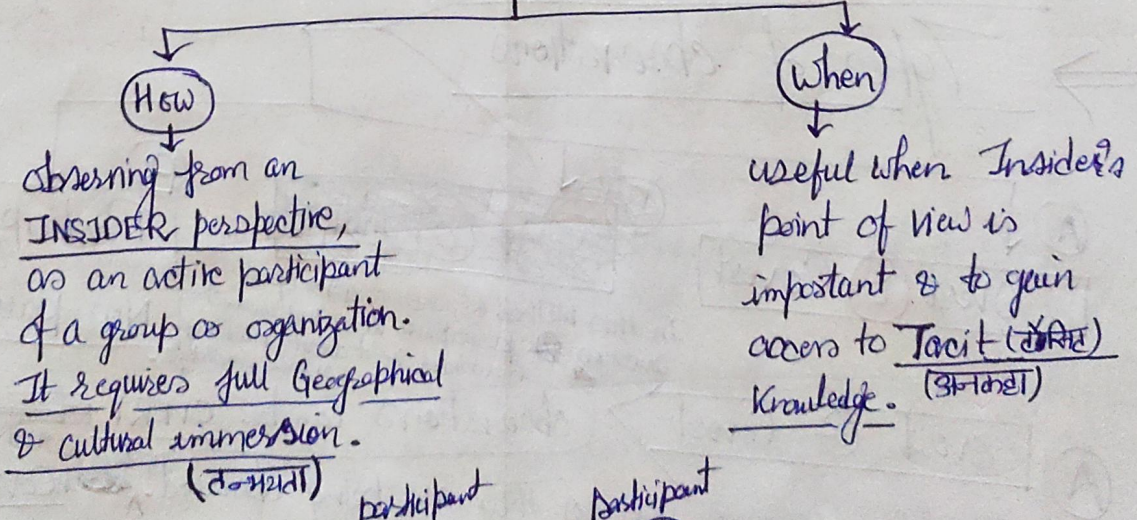 How
observing from an
INSIDER perspective,
as an active participant
of a group or organization.
It requires full Geographical
& cultural immersion.
(तन्मयता)
When
useful when Insider's
point of view is
important & to gain
access to Tacit (टॅसिट)
(अनकहा)
Knowledge.
participant participant